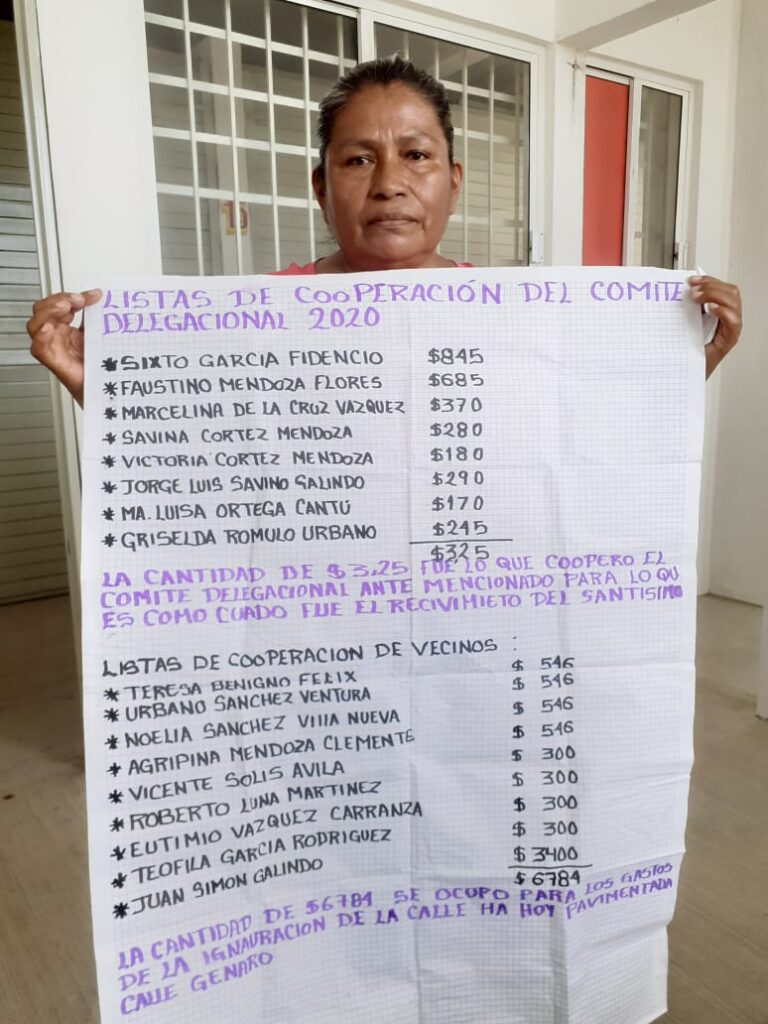 LISTAS DE COOPERACIÓN DEL COMITE
DELEGACIONAL 2020
* SIXTO GARCIA FIDENCIO $845
* FAUSTINO MENDOZA FLORES $685
* MARCELINA DE LA CRUZ VAZQUEZ $370
* SAVINA CORTEZ MENDOZA $280
* VICTORIA CORTEZ MENDOZA $180
* JORGE LUIS SAVINO GALINDO $290
* MA. LUISA ORTEGA CANTÚ $170
* GRISELDA ROMULO URBANO $245
$325
LA CANTIDAD DE $3,25 FUE LO QUE COOPERO EL
COMITE DELEGACIONAL ANTE MENCIONADO PARA LO QU
ES COMO CUADO FUE EL RECIVIMIETO DEL SANTISIMO
LISTAS DE COOPERACION DE VECINOS :
* TERESA BENIGNO FELIX $ 546
* URBANO SANCHEZ VENTURA $ 546
* NOELIA SANCHEZ VIIIA NUEVA $ 546
* AGRIPINA MENDOZA CLEMENTE $ 546
* VICENTE SOLIS AVILA $ 300
* ROBERTO LUNA MARTINEZ $ 300
* EUTIMIO VAZQUEZ CARRANZA $ 300
* TEOFILA GARCIA RODRIGUEZ $ 300
* JUAN SIMON GALINDO $ 3400
$ 6784
LA CANTIDAD DE $6784 SE OCUPO PARA LOS GASTOS
DE LA IGNAURACION DE LA CALLE HA HOY PAVINENTADA
CALLE GENARO